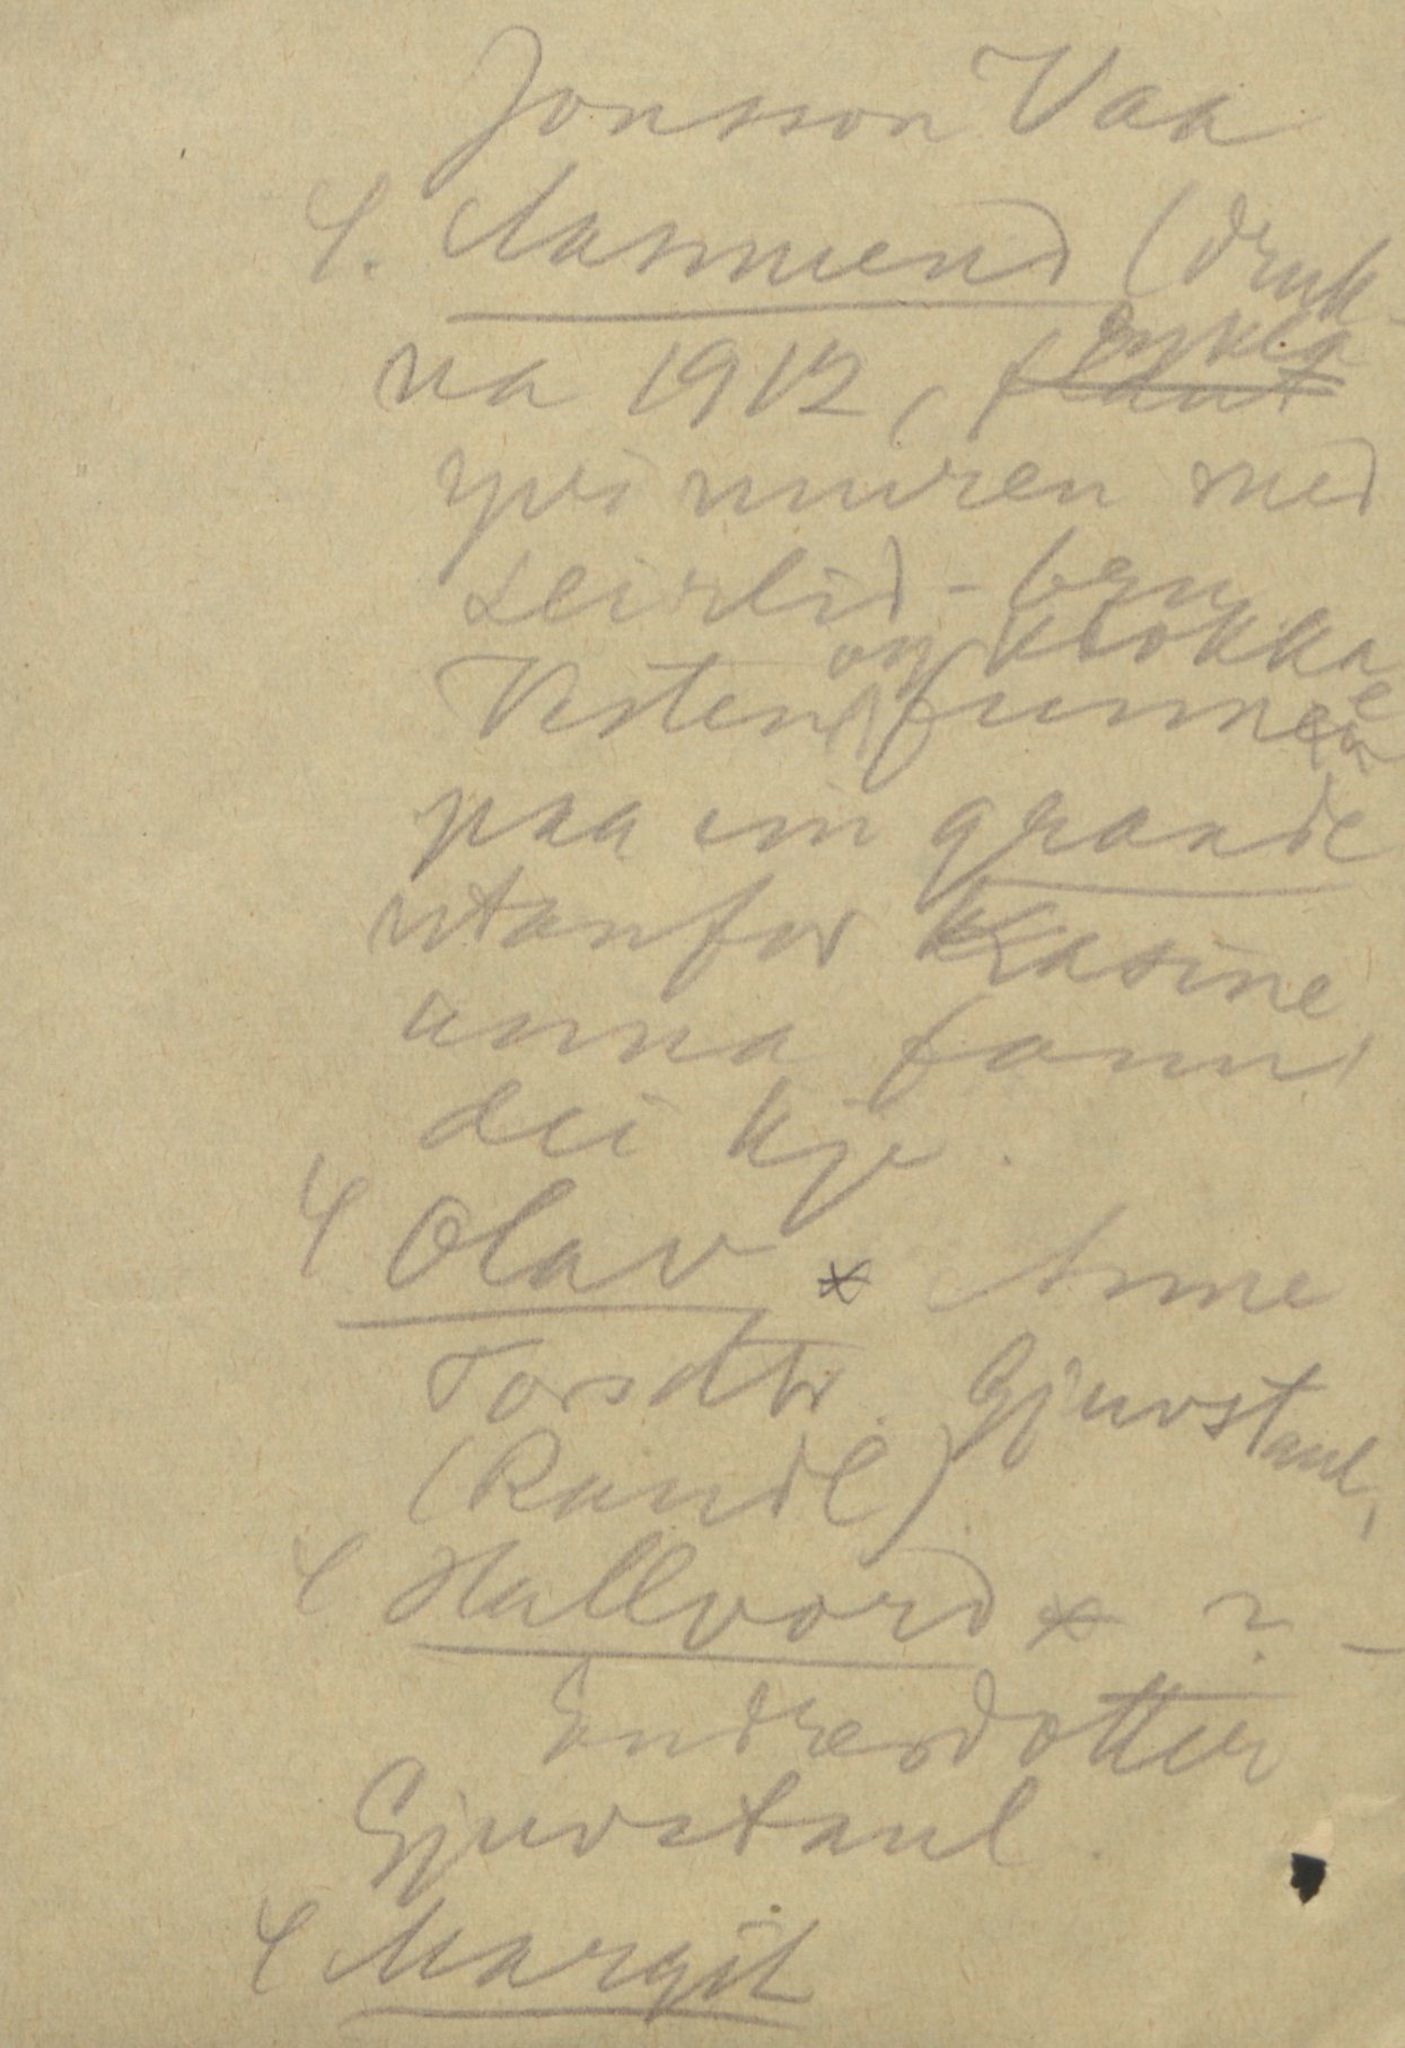 Jonsson Vaa
4. Aasmund (druk-
na 1912, sykla
yvi muren med
Leirlid-bru
og klokka
Vesten funne
paa ein grande
utanfor Kasine,
anna fann
dei kje.
4 Olav * Anne
Torsdtr. Gjuvstaul,
(Randl)
4 Hallvord * ? -
Endresdotter
Gjuvstaul.
4 Margit